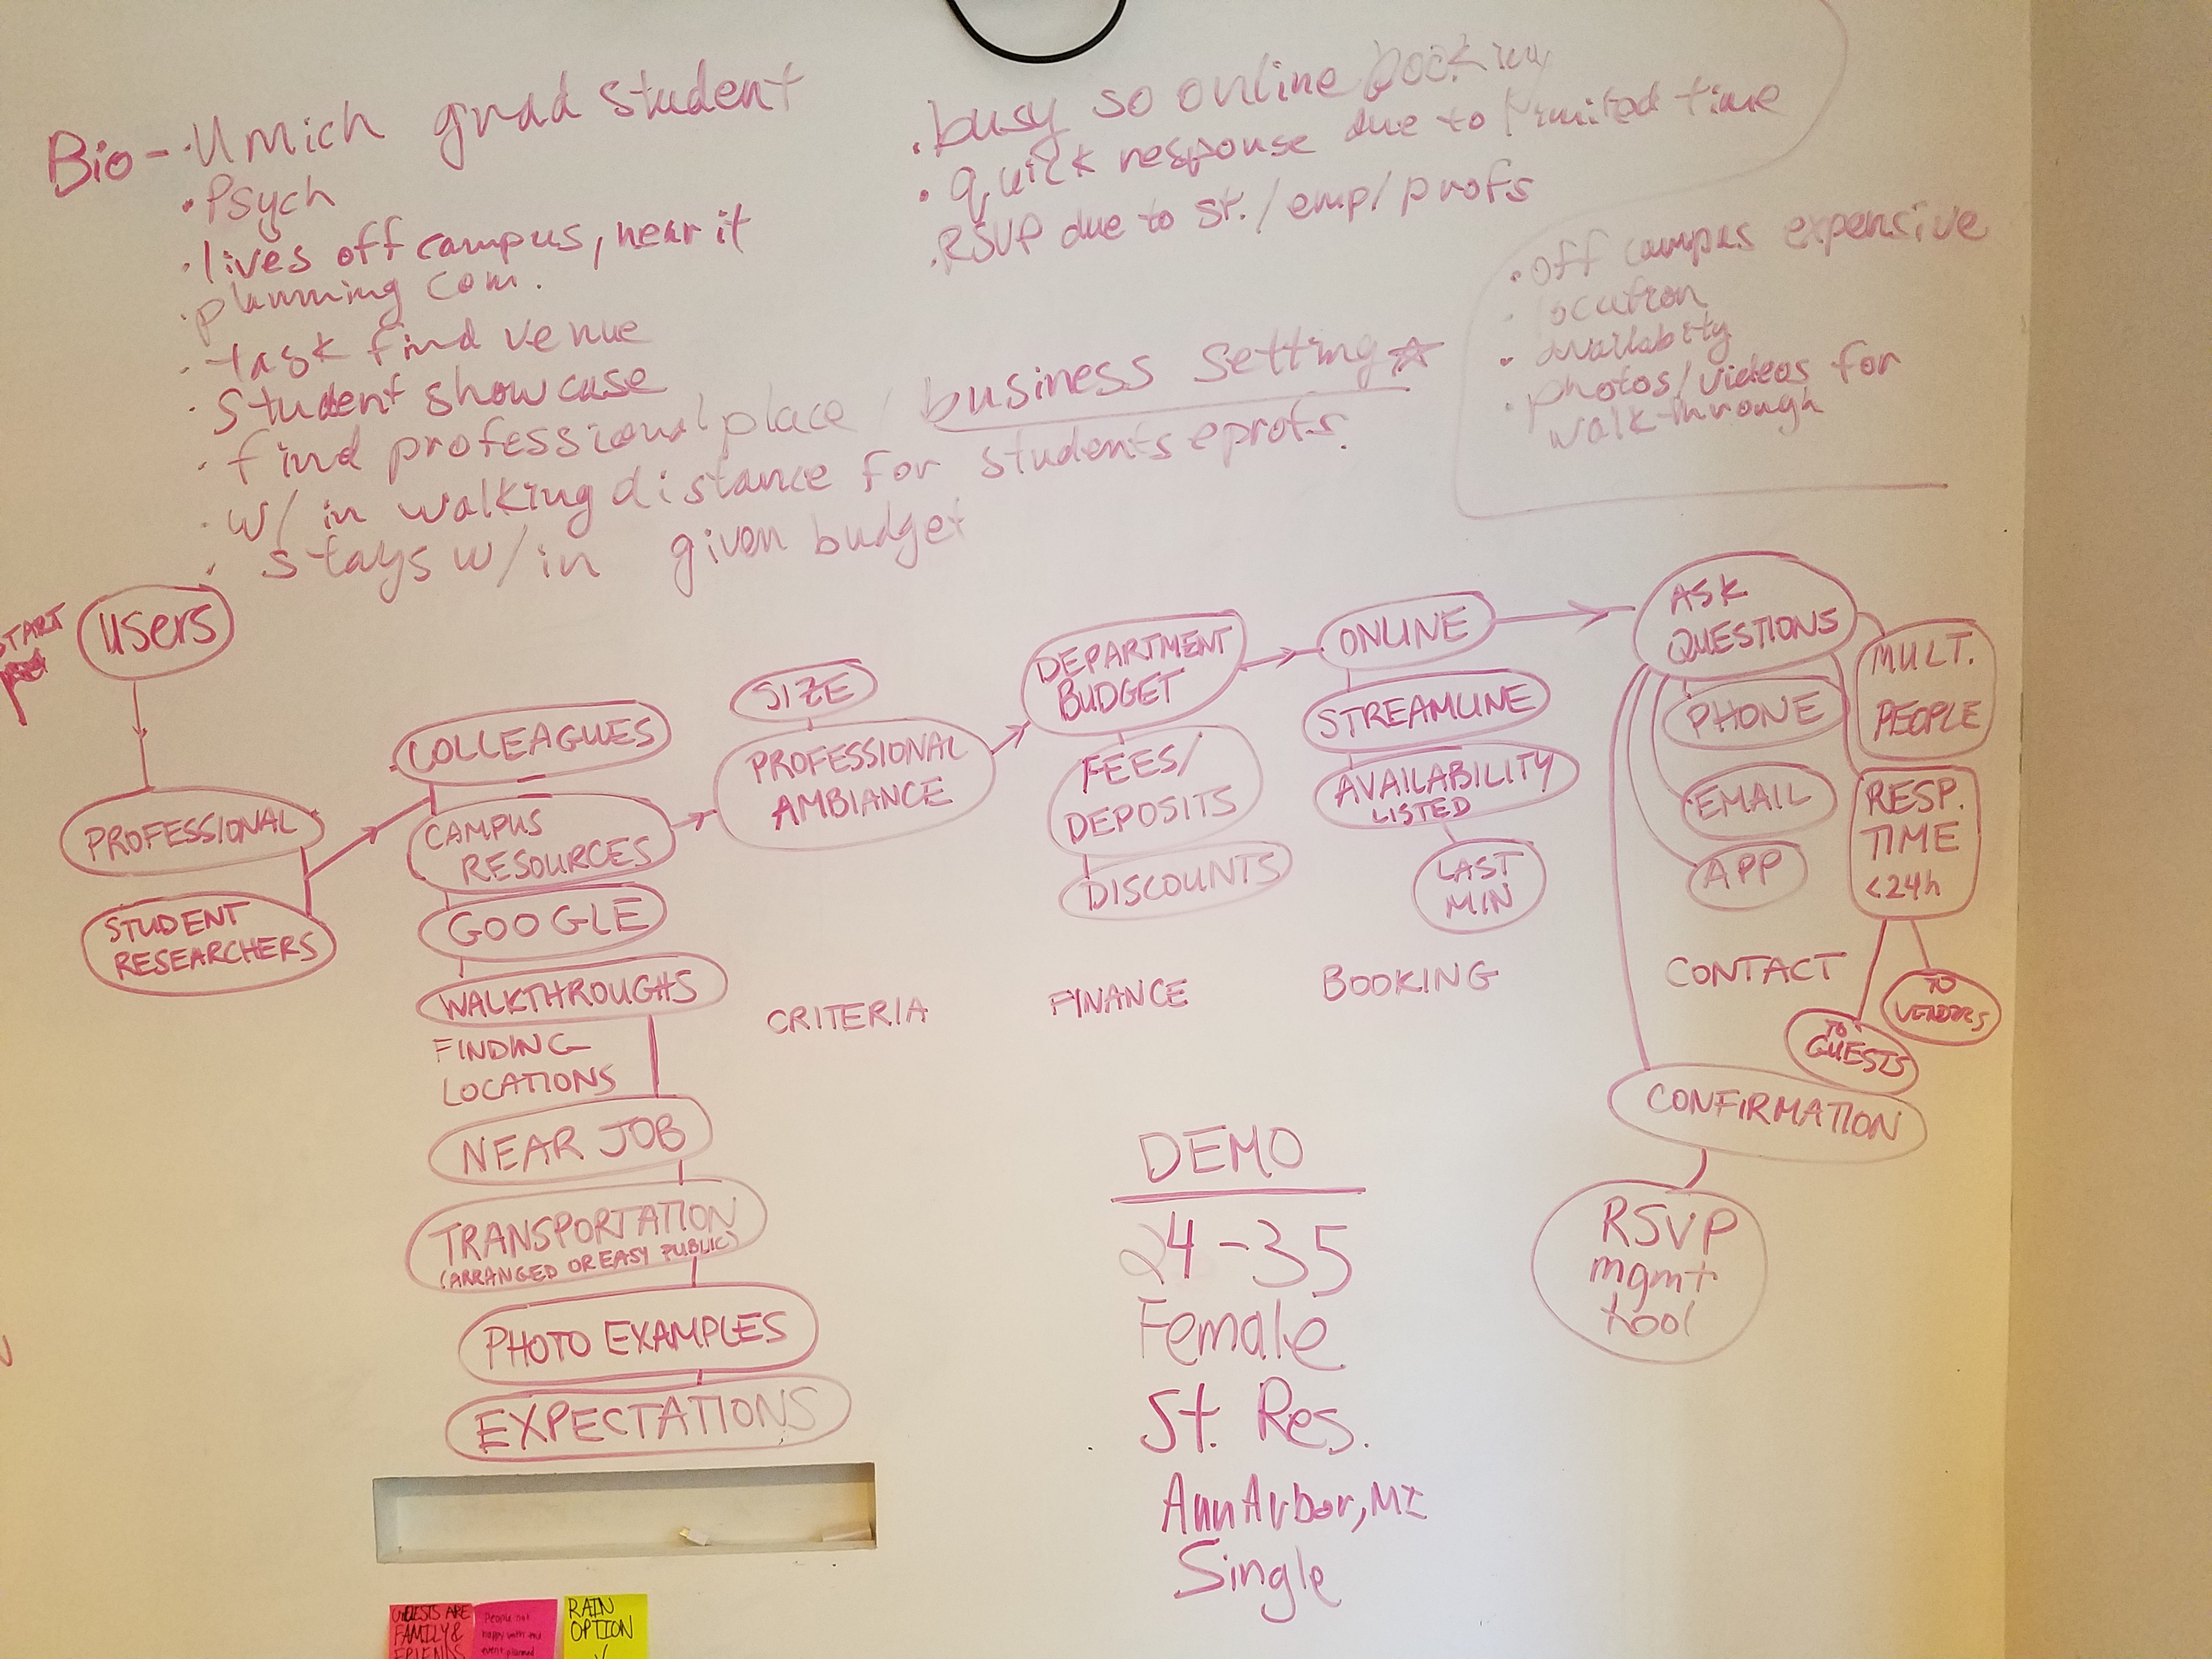 Bio - · Umich grad student
· Psych
· lives off campus, near it
· planning com.
· task find venue
· Student showcase
· find professional place / business setting ☆
· w/in walking distance for students & profs.
· stays w/in given budget
· busy so online booking
· quick response due to limited time
· RSVP due to st./emp/profs
· off campus expensive
· location
· availabity
· photos/videos for
walk-through
START
users
PROFESSIONAL
STUDENT
RESEARCHERS
COLLEAGUES
CAMPUS
RESOURCES
GOOGLE
WALKTHROUGHS
FINDING
LOCATIONS
NEAR JOB
TRANSPORTATION
(ARRANGED OR EASY PUBLIC)
PHOTO EXAMPLES
EXPECTATIONS
SIZE
PROFESSIONAL
AMBIANCE
CRITERIA
DEPARTMENT
BUDGET
FEES/
DEPOSITS
DISCOUNTS
FINANCE
ONLINE
STREAMLINE
AVAILABILITY
LISTED
LAST
MIN
BOOKING
ASK
QUESTIONS
PHONE
EMAIL
APP
MULT.
PEOPLE
RESP.
TIME
<24h
CONTACT
TO
VENDORS
TO
GUESTS
CONFIRMATION
RSVP
mgmt
tool
DEMO
24-35
Female
St. Res.
Ann Arbor, MI
Single
GUESTS ARE
FAMILY &
FRIENDS
People not
happy with
event planned
RAIN
OPTION